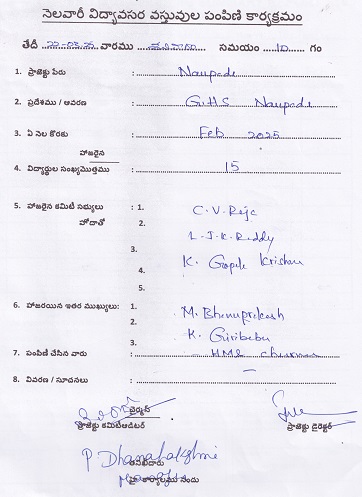 నెలవారీ విద్యావసర వస్తువుల పంపిణీ కార్యక్రమం
తేదీ 22-02-25 వారము శనివారం సమయం 10 గం
1. ప్రాజెక్టు పేరు : Naupada
2. ప్రదేశము / ఆవరణ : GHS Naupada
3. ఏ నెల కొరకు : Feb 2025
హాజరైన
4. విద్యార్థుల సంఖ్య మొత్తము : 15
5. హాజరైన కమిటీ సభ్యులు : 1. C. V. Raja
హోదాతో 2. L. J. K. Reddy
3. K. Gopala Krishna
4.
5.
6. హాజరయిన ఇతర ముఖ్యులు: 1. M. Bhanuprakash
2. K. Giribabu
3.
7. పంపిణీ చేసిన వారు : HMS
8. వివరణ / సూచనలు : —
ఛైర్మన్
ప్రాజెక్టు కమిటీఆడిటర్ ప్రాజెక్టు డైరెక్టర్
P. Dhanalakshmi